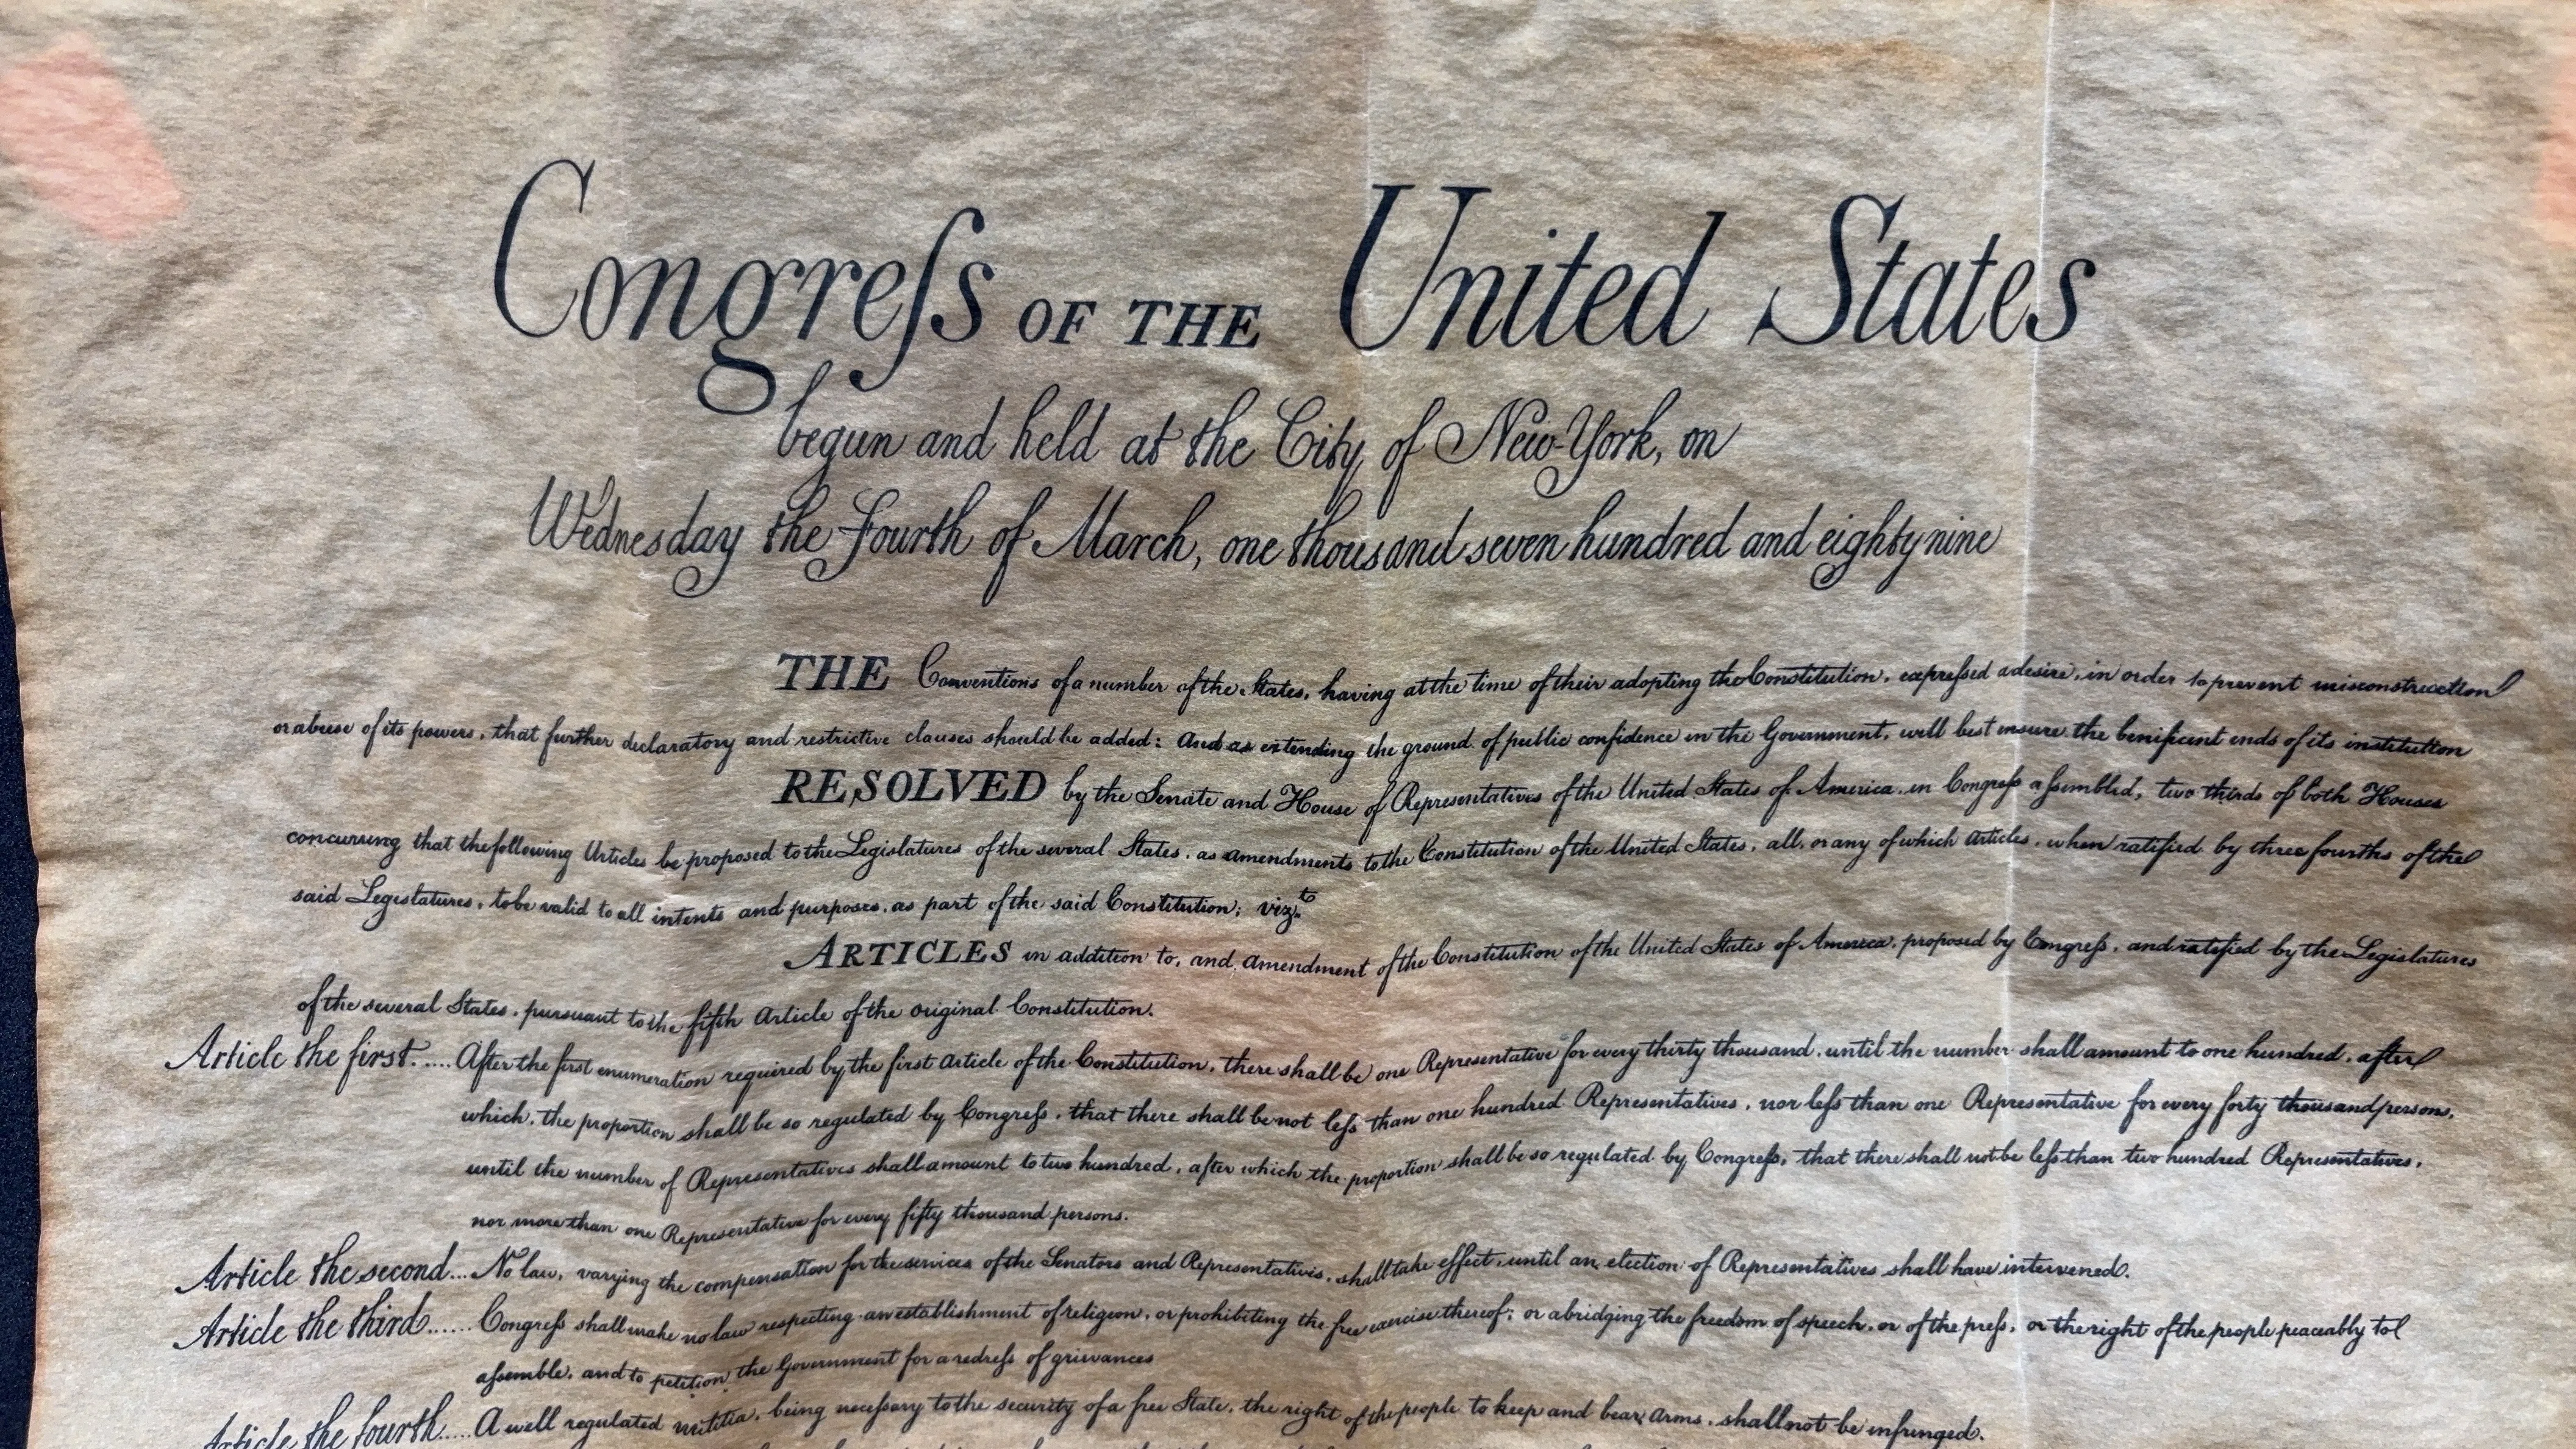 Congreſs OF THE United States
begun and held at the City of New-York, on
Wednesday the Fourth of March, one thousand seven hundred and eighty nine
THE Conventions of a number of the States, having at the time of their adopting the Constitution, expreſsed a desire, in order to prevent misconstruction
or abuse of its powers, that further declaratory and restrictive clauses should be added: And as extending the ground of public confidence in the Government, will best insure the benificent ends of its institution
RESOLVED by the Senate and House of Representatives of the United States of America, in Congreſs aſsembled, two thirds of both Houses
concurring that the following Articles be proposed to the Legislatures of the several States, as amendments to the Constitution of the United States, all, or any of which Articles, when ratified by three fourths of the
said Legislatures, to be valid to all intents and purposes, as part of the said Constitution; viz.t
ARTICLES in addition to, and amendment of the Constitution of the United States of America, proposed by Congreſs, and ratified by the Legislatures
of the several States, pursuant to the fifth Article of the original Constitution.
Article the first..... After the first enumeration required by the first Article of the Constitution, there shall be one Representative for every thirty thousand, until the number shall amount to one hundred, after
which, the proportion shall be so regulated by Congreſs, that there shall be not leſs than one hundred Representatives, nor leſs than one Representative for every forty thousand persons,
until the number of Representatives shall amount to two hundred, after which the proportion shall be so regulated by Congreſs, that there shall not be leſs than two hundred Representatives,
nor more than one Representative for every fifty thousand persons.
Article the second... No law, varying the compensation for the services of the Senators and Representatives, shall take effect, until an election of Representatives shall have intervened.
Article the third...... Congreſs shall make no law respecting an establishment of religion, or prohibiting the free exercise thereof; or abridging the freedom of speech, or of the preſs, or the right of the people peaceably to
aſsemble, and to petition the Government for a redreſs of grievances
Article the fourth..... A well regulated militia, being neceſsary to the security of a free State, the right of the people to keep and bear arms, shall not be infringed.